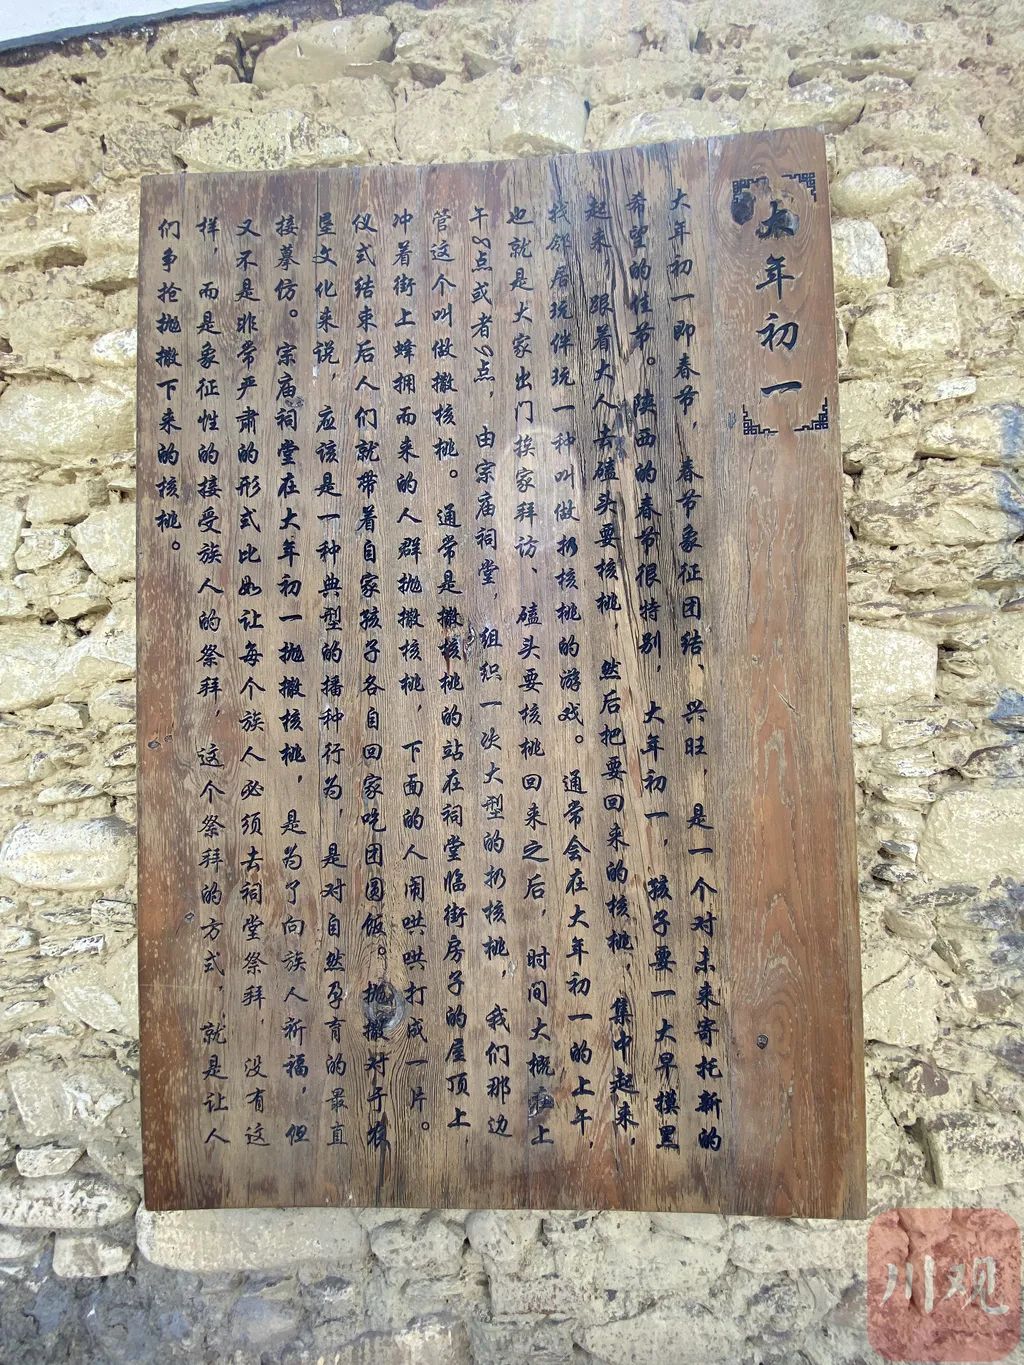 大年初一
大年初一即春节，春节象征团结、兴旺，是一个对未来寄托新的
希望的佳节。陕西的春节很特别，大年初一，孩子要一大早摸黑
起来，跟着大人去磕头要核桃，然后把要回来的核桃，集中起来，
找邻居玩伴玩一种叫做扔核桃的游戏。通常会在大年初一的上午，
也就是大家出门挨家拜访、磕头要核桃回来之后，时间大概在上
午8点或者9点，由宗庙祠堂，组织一次大型的扔核桃，我们那边
管这个叫做撒核桃。通常是撒核桃的站在祠堂临街房子的屋顶上
冲着街上蜂拥而来的人群抛撒核桃，下面的人闹哄哄打成一片。
仪式结束后人们就带着自家孩子各自回家吃团圆饭。抛撒对于农
垦文化来说，应该是一种典型的播种行为，是对自然孕育的最直
接摹仿。宗庙祠堂在大年初一抛撒核桃，是为了向族人祈福，但
又不是非常严肃的形式比如让每个族人必须去祠堂祭拜，没有这
样，而是象征性的接受族人的祭拜，这个祭拜的方式，就是让人
们争抢抛撒下来的核桃。
川观